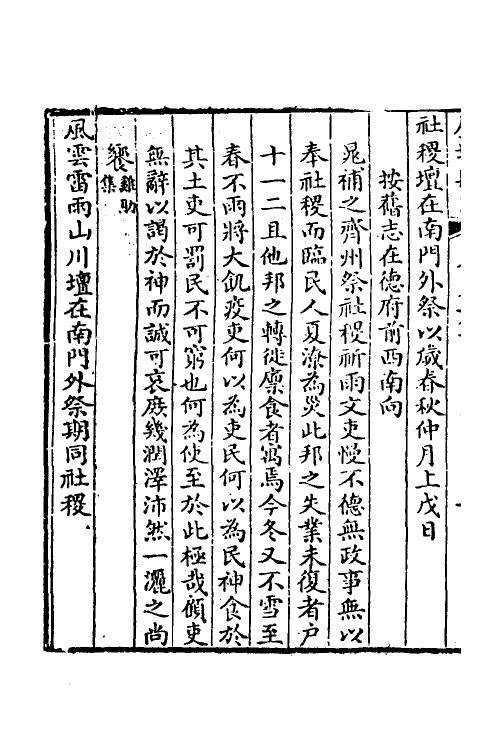 社稷壇在南門外祭以歲春秋仲月上戊日
按舊志在德府前西南向
晁補之齊州祭社稷祈雨文吏慢不德無政事無以
奉社稷而臨民人夏潦為災此邦之失業未復者戶
十一二且他邦之轉徙廪食者寓焉今冬又不雪至
春不雨將大飢疫吏何以為吏民何以為民神食於
其土吏可罰民不可窮也何為使至於此極哉顧吏
無辭以謁於神而誠可哀庶幾潤澤沛然一灑之尚
饗雞肋集
風雲雷雨山川壇在南門外祭期同社稷